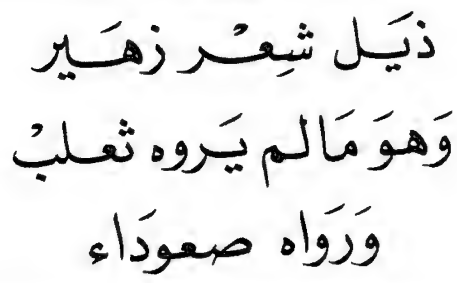 ذيَل شِعْر زهَير
وَهوَ مَا لم يَروه ثعلبْ
وَرَوَاه صعودَاء